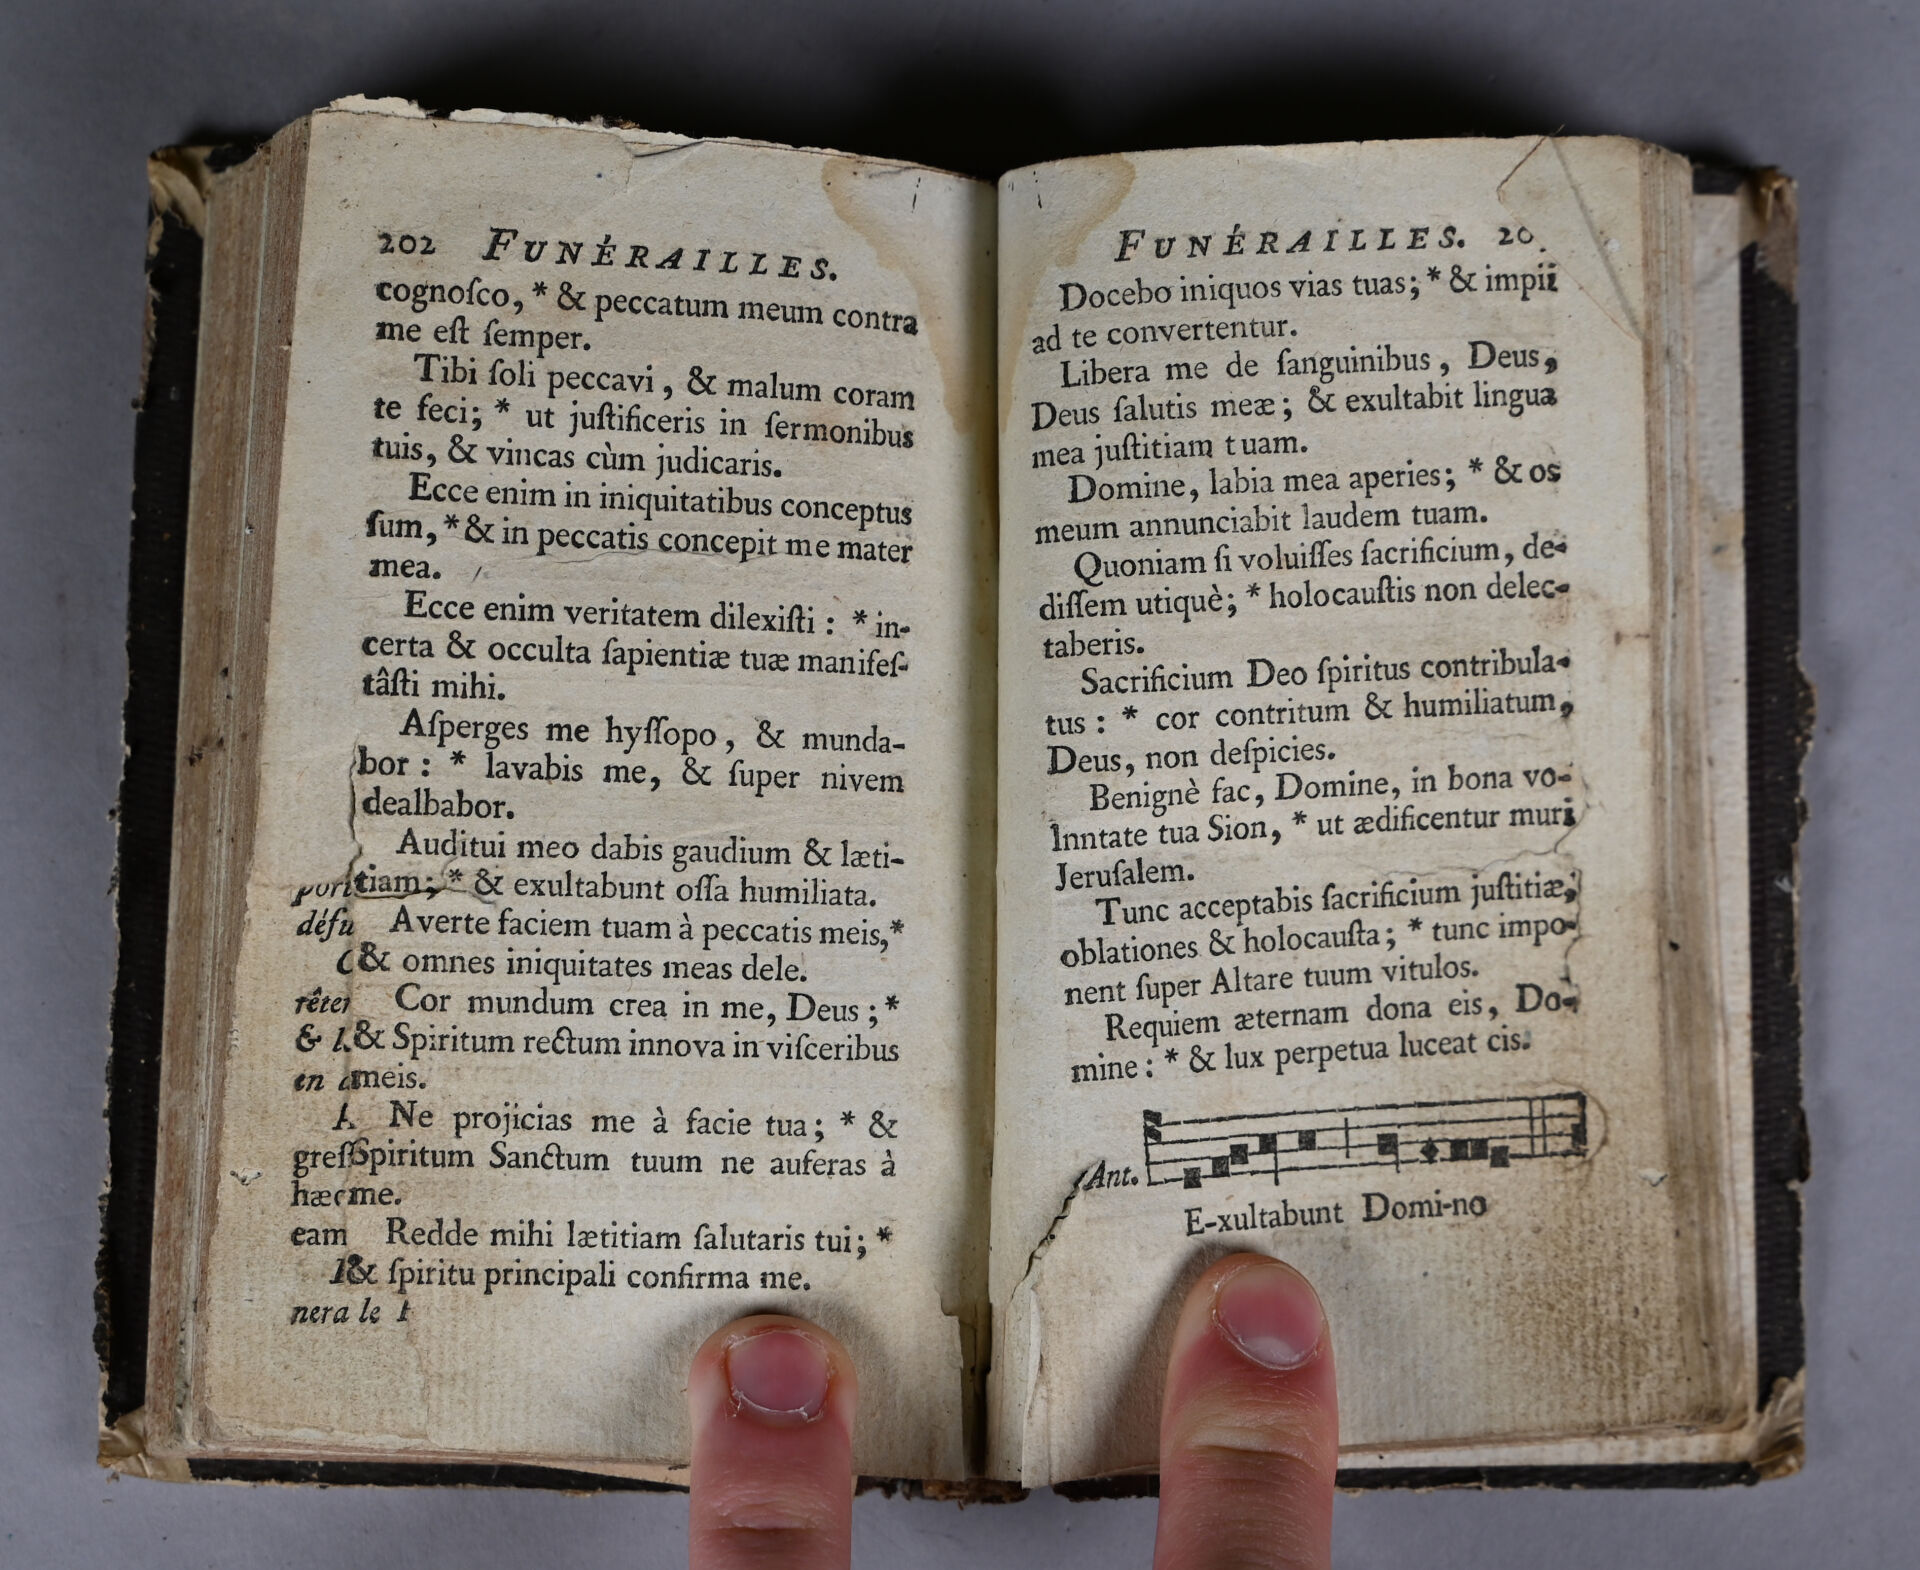 202 FUNÉRAILLES.
cognoſco, * & peccatum meum contra
me eſt ſemper.
Tibi ſoli peccavi, & malum coram
te feci; * ut juſtificeris in ſermonibus
tuis, & vincas cùm judicaris.
Ecce enim in iniquitatibus conceptus
ſum, * & in peccatis concepit me mater
mea.
Ecce enim veritatem dilexiſti : * in-
certa & occulta ſapientiæ tuæ manifeſ-
tâſti mihi.
Aſperges me hyſſopo, & munda-
bor : * lavabis me, & ſuper nivem
dealbabor.
Auditui meo dabis gaudium & læti-
tiam; * & exultabunt oſſa humiliata.
défu Averte faciem tuam à peccatis meis, *
& omnes iniquitates meas dele.
Cor mundum crea in me, Deus ; *
& & Spiritum rectum innova in viſceribus
en meis.
Ne projicias me à facie tua; * &
greſſ Spiritum Sanctum tuum ne auferas à
hæc me.
eam Redde mihi lætitiam ſalutaris tui; *
& ſpiritu principali confirma me.
nera le
FUNÉRAILLES. 20
Docebo iniquos vias tuas; * & impii
ad te convertentur.
Libera me de ſanguinibus, Deus,
Deus ſalutis meæ; & exultabit lingua
mea juſtitiam tuam.
Domine, labia mea aperies; * & os
meum annunciabit laudem tuam.
Quoniam ſi voluiſſes ſacrificium, de-
diſſem utiquè; * holocauſtis non delec-
taberis.
Sacrificium Deo ſpiritus contribula-
tus : * cor contritum & humiliatum,
Deus, non deſpicies.
Benignè fac, Domine, in bona vo-
lnntate tua Sion, * ut ædificentur muri
Jeruſalem.
Tunc acceptabis ſacrificium juſtitiæ,
oblationes & holocauſta; * tunc impo-
nent ſuper Altare tuum vitulos.
Requiem æternam dona eis, Do-
mine : * & lux perpetua luceat cis.
Ant.
E-xultabunt Domi-no